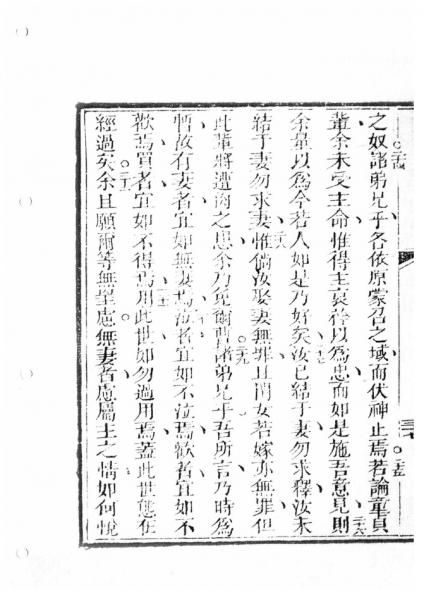 之奴諸弟兄乎各依原蒙召之域而伏神止焉若論童貞
輩余未受主命惟得主哀矜以為忠而如是施吾意見則
余量以為今若人如是乃好矣汝已結于妻勿求釋汝未
結于妻勿求妻惟倘汝娶妻無罪且閨女若嫁亦無罪但
此輩將遭肉之患余乃免爾曹諸弟兄乎吾所言乃時為
暫故有妻者宜如無妻焉泣者宜如不泣焉歡者宜如不
歡焉買者宜如不得焉用此世如勿過用焉蓋此世態在
經過矣余且願爾等無罣慮無妻者慮屬主之情如何悅